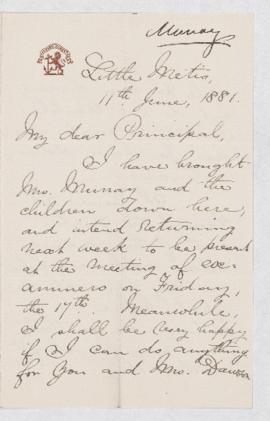 Murray
Little Metis,
11th June, 1881.
My dear Principal,
I have brought
Mrs. Murray and the
children down here,
and intend returning
next week to be present
at the meeting of exa-
aminers on Friday,
the 17th. Meanwhile,
I shall be very happy
if I can do anything
for you and Mrs. Dawson